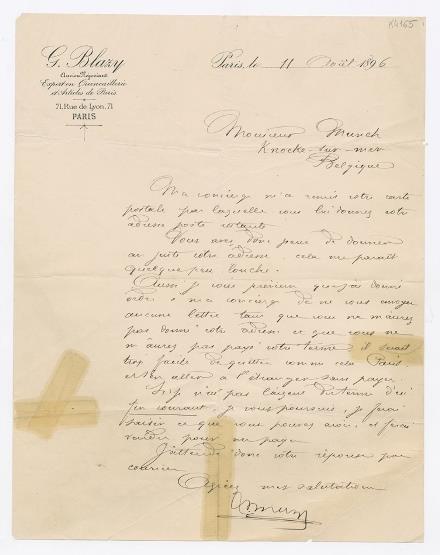 K4165
G. Blazy
Ancien Négociant
Expert en Quincaillerie
et Articles de Paris
71, Rue de Lyon, 71
PARIS
Paris, le 11 Août 1896
Monsieur Munch
Knocke-sur-mer
Belgique
Ma concierge m'a remis votre carte
postale par laquelle vous lui donnez votre
adresse poste restante
Vous avez donc peur de donner
au juste votre adresse. cela me parait
quelque peu louche.
Aussi je vous préviens que j'ai donné
ordre à ma concierge de ne vous envoyer
aucune lettre tant que vous ne m'aurez
pas donné votre adresse et que vous ne
m'aurez pas payé votre terme il serait
trop facile de quitter comme cela Paris
et s'en aller à l'étranger sans payer.
Si je n'ai pas l'argent du terme d'ici
fin courant, je vous poursuis, je ferai
saisir ce que vous pouvez avoir et ferai
vendre pour me payer
J'attends donc votre réponse par
courrier
Agréez mes salutations